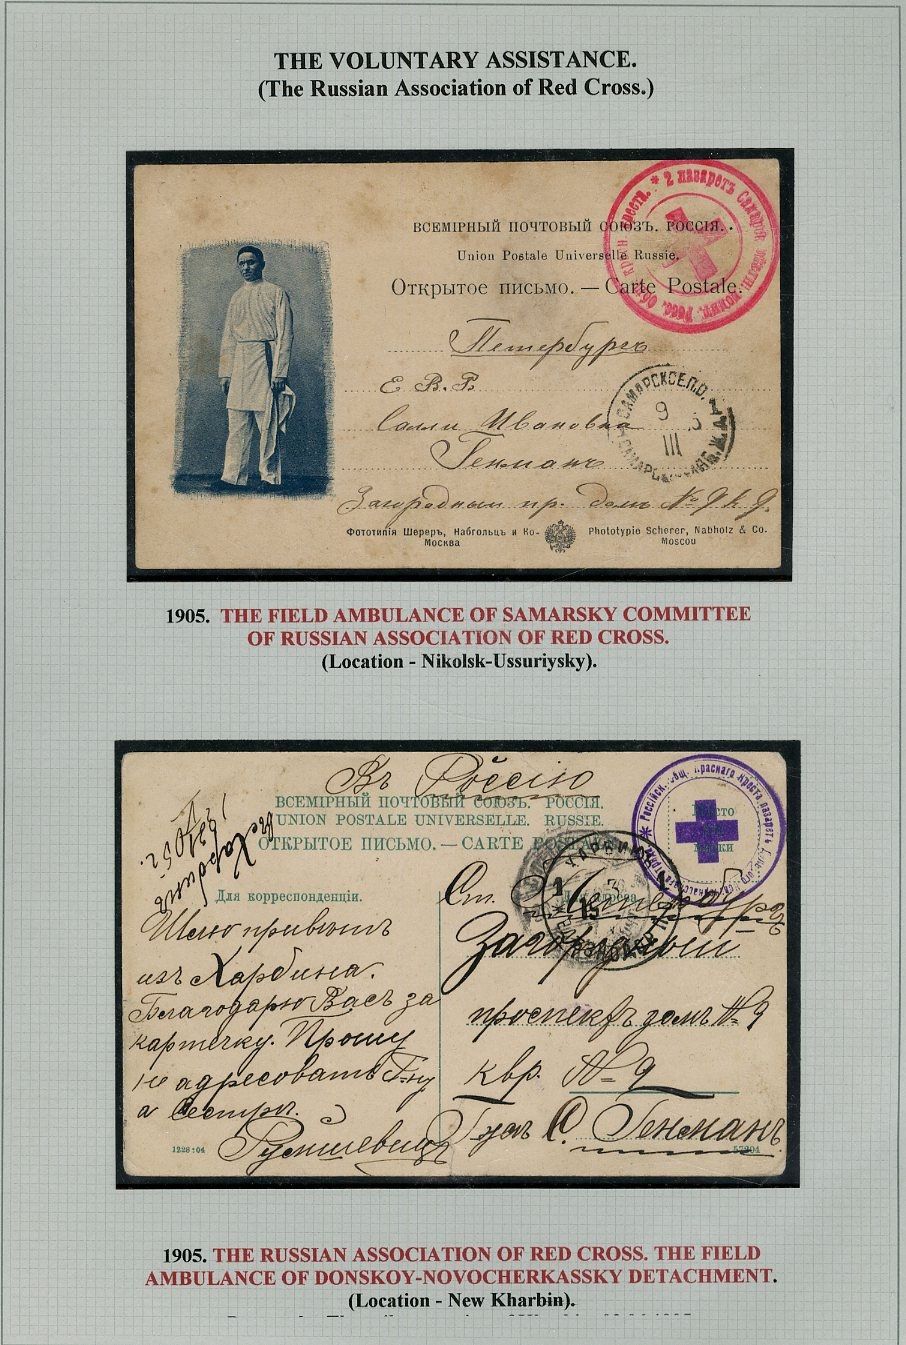 THE VOLUNTARY ASSISTANCE.
(The Russian Association of Red Cross.)
* 2 лазаретъ Самарск
ВСЕМІРНЫЙ ПОЧТОВЫЙ СОЮЗЪ. РОССІЯ.
Union Postale Universelle Russie.
Открытое письмо. — Carte Postale.
Петербургъ
Е. В. Б.
САМАРСКОЕ П.О.
9 III 5
Салли Ивановна
Генманъ
Загородный пр. домъ № 9 к 9.
Фототипія Шереръ, Набгольцъ и Ко-
Москва
Phototypie Scherer, Nabholz & Co.
Moscou
1905. THE FIELD AMBULANCE OF SAMARSKY COMMITTEE
OF RUSSIAN ASSOCIATION OF RED CROSS.
(Location - Nikolsk-Ussuriysky).
Въ Россію
ВСЕМІРНЫЙ ПОЧТОВЫЙ СОЮЗЪ. РОССІЯ.
UNION POSTALE UNIVERSELLE. RUSSIE.
ОТКРЫТОЕ ПИСЬМО. — CARTE POSTALE.
Россійск. общ. Краснаго Креста лазаретъ
Мѣсто
марки
Харбинъ
1905 г.
Для корреспонденціи.
Шлю привѣтъ
изъ Харбина.
Благодарю Васъ за
карточку. Прошу
не адресовать Г-ну
а сестрѣ.
ХАРБИНЪ
15
Ст. Петербургъ
Загородный
проспектъ домъ № 9
квр. № 9
Г-жѣ С. Генманъ.
1228 : 04
57204
1905. THE RUSSIAN ASSOCIATION OF RED CROSS. THE FIELD
AMBULANCE OF DONSKOY-NOVOCHERKASSKY DETACHMENT.
(Location - New Kharbin).